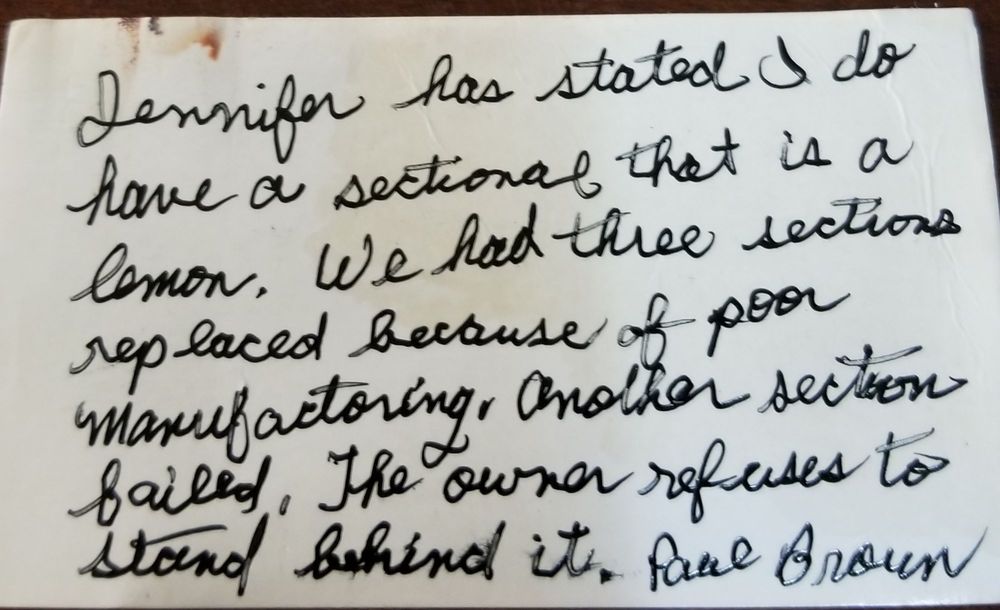 Jennifer has stated I do
have a sectional that is a
lemon. We had three sections
replaced because of poor
manufactoring. Another section
failed. The owner refuses to
stand behind it. Paul Brown